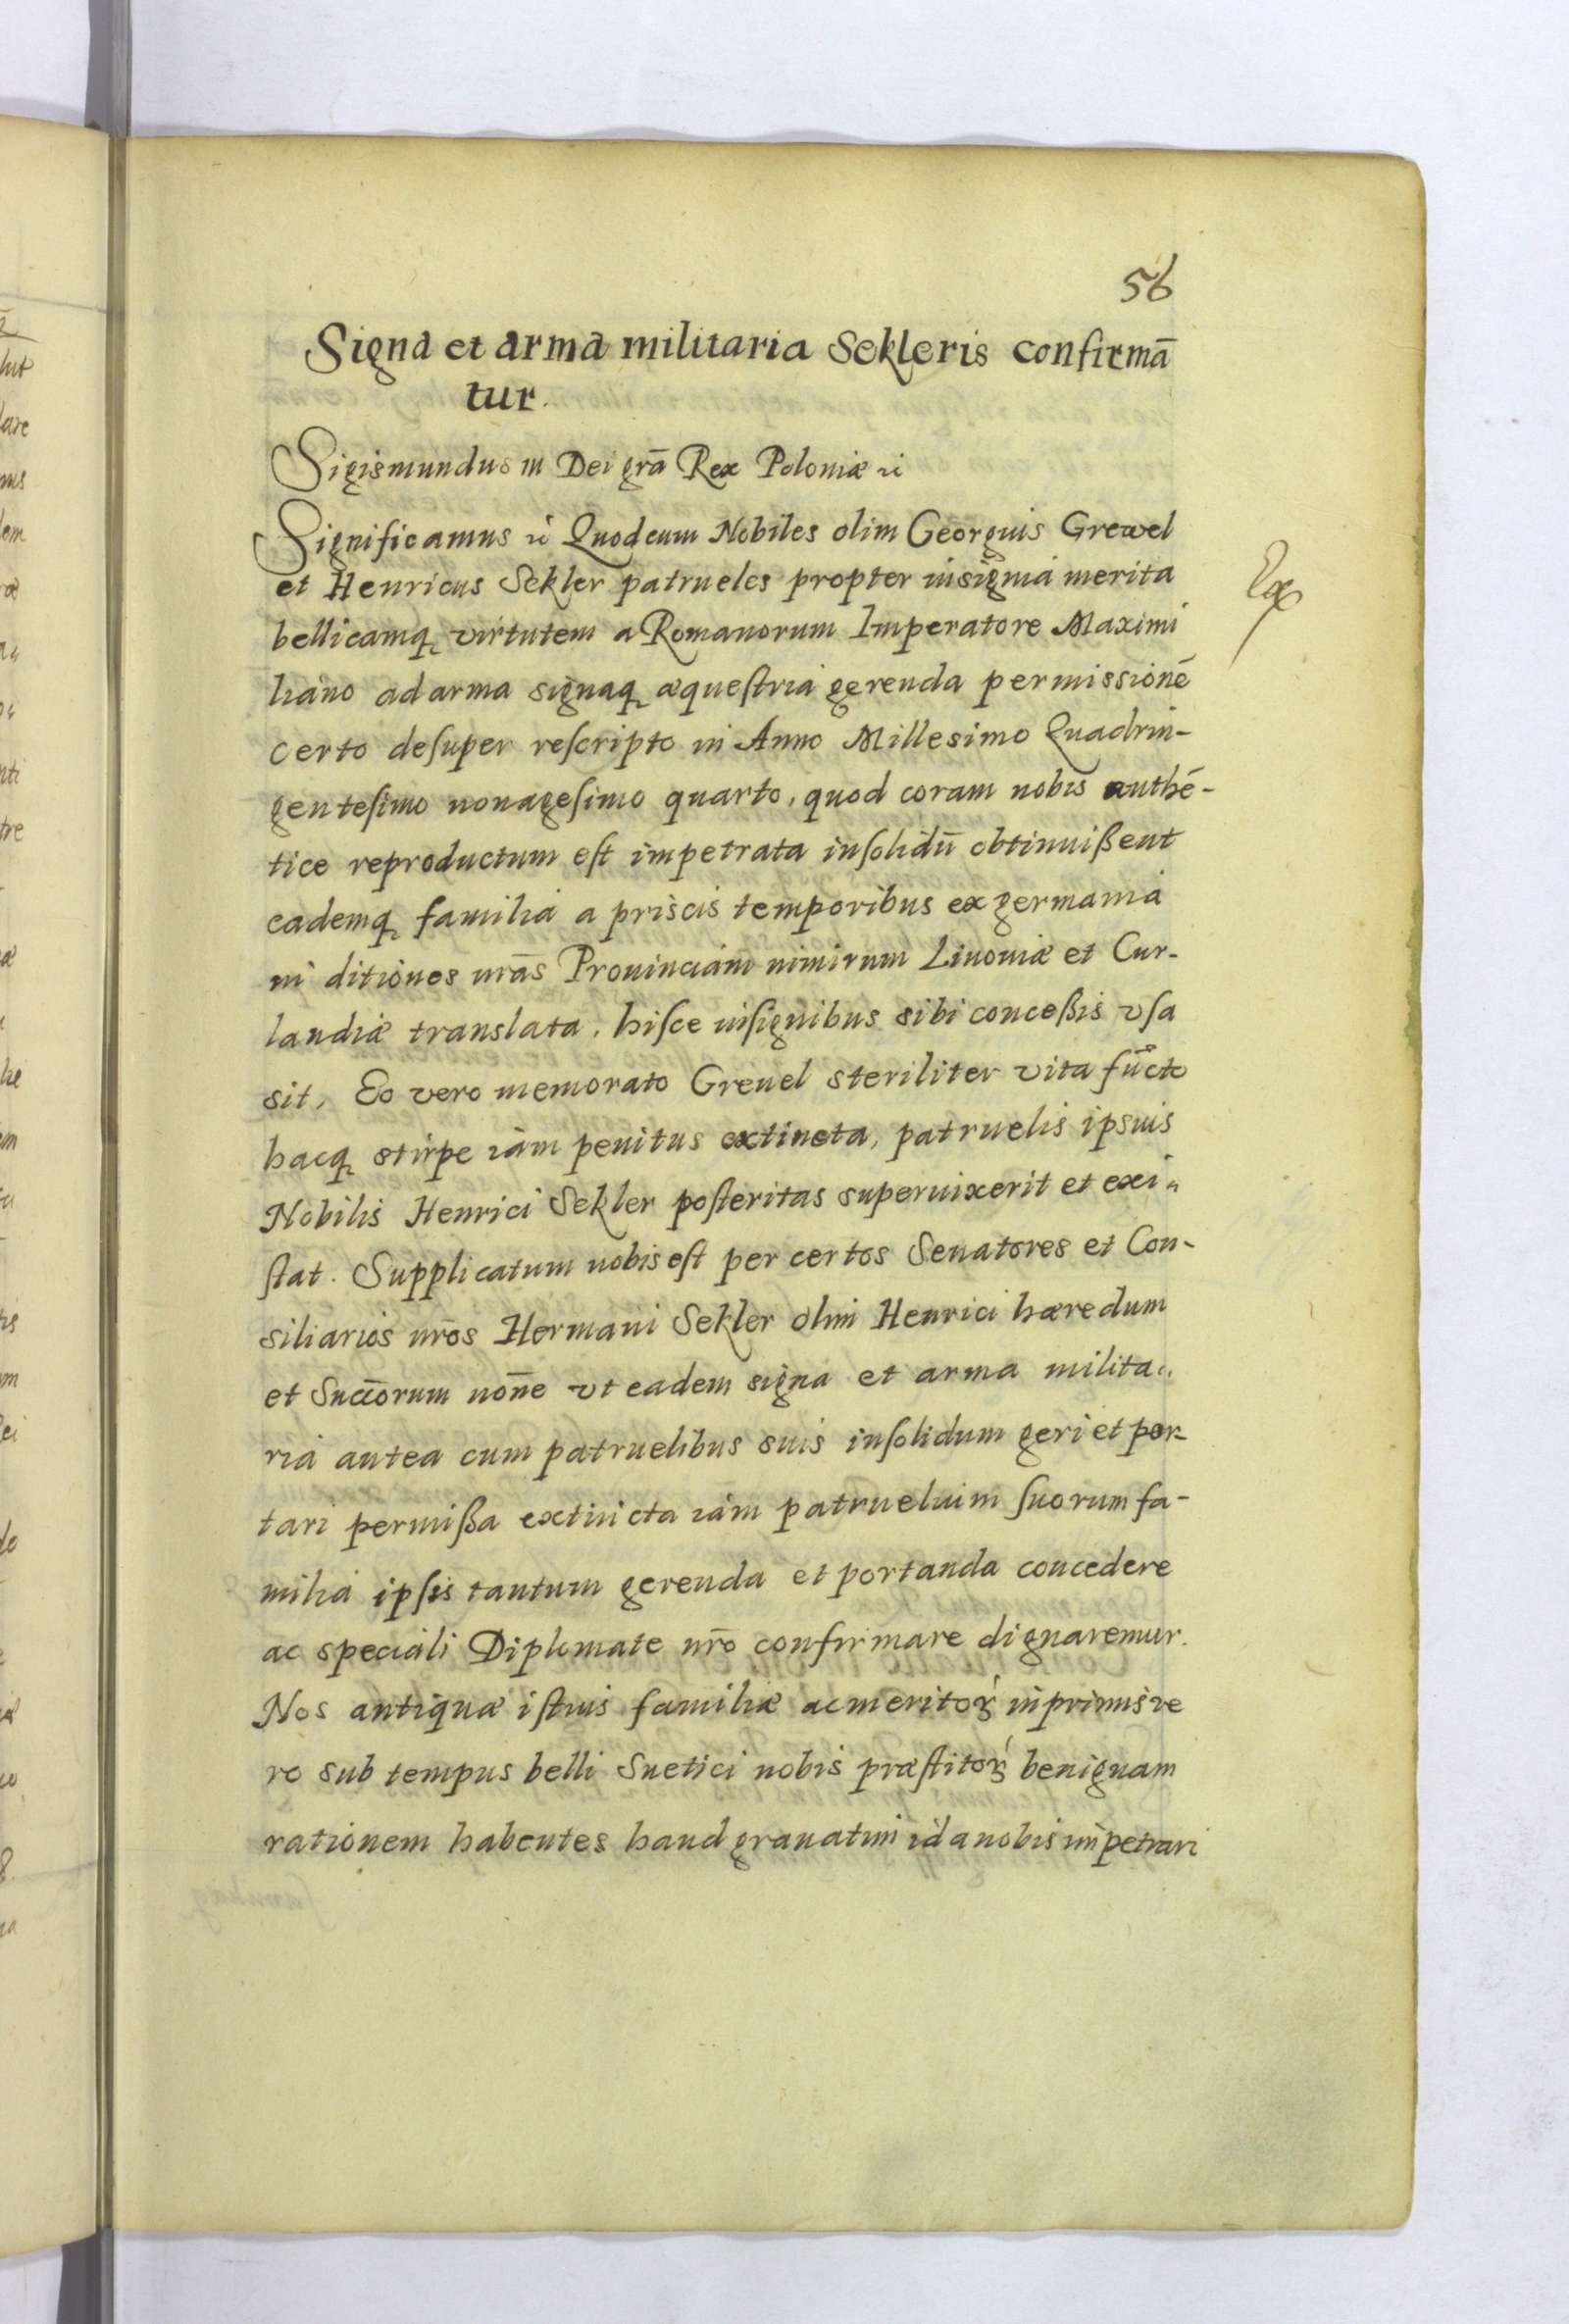 56
Signa et arma militaria Sekleris confirmā
tur.
Sigismundus III Dei grā Rex Poloniæ
Significamus Quod cum Nobiles olim Georgius Grewel
et Henricus Sekler patrueles propter insignia merita
bellicamq virtutem a Romanorum Imperatore Maximi
liano ad arma signaq æqueſtria gerenda permissionē
certo deſuper reſcripto in Anno Millesimo Quadrin-
genteſimo nonageſimo quarto, quod coram nobis authē-
tice reproductum eſt impetrata inſolidū obtinuißent
eademq familia a priscis temporibus ex germania
in ditiones nrās Prouinciam nimirum Liuoniæ et Cur-
landiæ translata, hiſce inſignibus sibi conceßis vſa
sit, Eo vero memorato Greuel steriliter vita fūcto
hacq stirpe iam penitus extincta, patruelis ipsius
Nobilis Henrici Sekler poſteritas superuixerit et exi-
ſtat. Supplicatum nobis eſt per certos Senatores et Con-
siliarios nrōs Hermani Sekler olim Henrici hæredum
et Succorum nōne vt eadem signa et arma milita-
ria antea cum patruelibus suis inſolidum geri et por-
tari permißa extincta iam patruelium ſuorum fa-
milia ipſis tantum gerenda et portanda concedere
ac speciali Diplomate nrō confirmare dignaremur.
Nos antiquæ iſtius familiæ ac meritoꝝ inprimis ve
ro sub tempus belli Suetici nobis præſtitoꝝ benignam
rationem habentes haud grauatim id a nobis impetrari